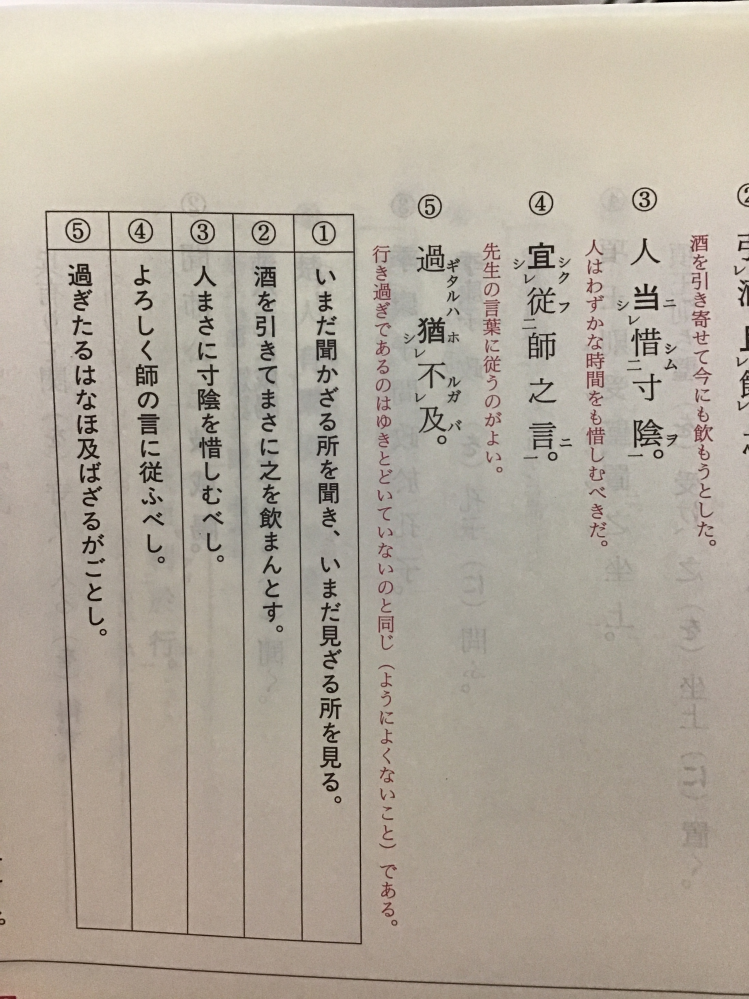 ②
酒を引き寄せて今にも飲もうとした。
③ 人当ニシレ惜シム二寸陰ヲ一。
人はわずかな時間をも惜しむべきだ。
④ 宜シクシレ従フ二師之言ニ一。
先生の言葉に従うのがよい。
⑤ 過ギタルハ猶ホシレ不ルガレ及バ。
行き過ぎであるのはゆきとどいていないのと同じ（ようによくないこと）である。
① いまだ聞かざる所を聞き、いまだ見ざる所を見る。
② 酒を引きてまさに之を飲まんとす。
③ 人まさに寸陰を惜しむべし。
④ よろしく師の言に従ふべし。
⑤ 過ぎたるはなほ及ばざるがごとし。